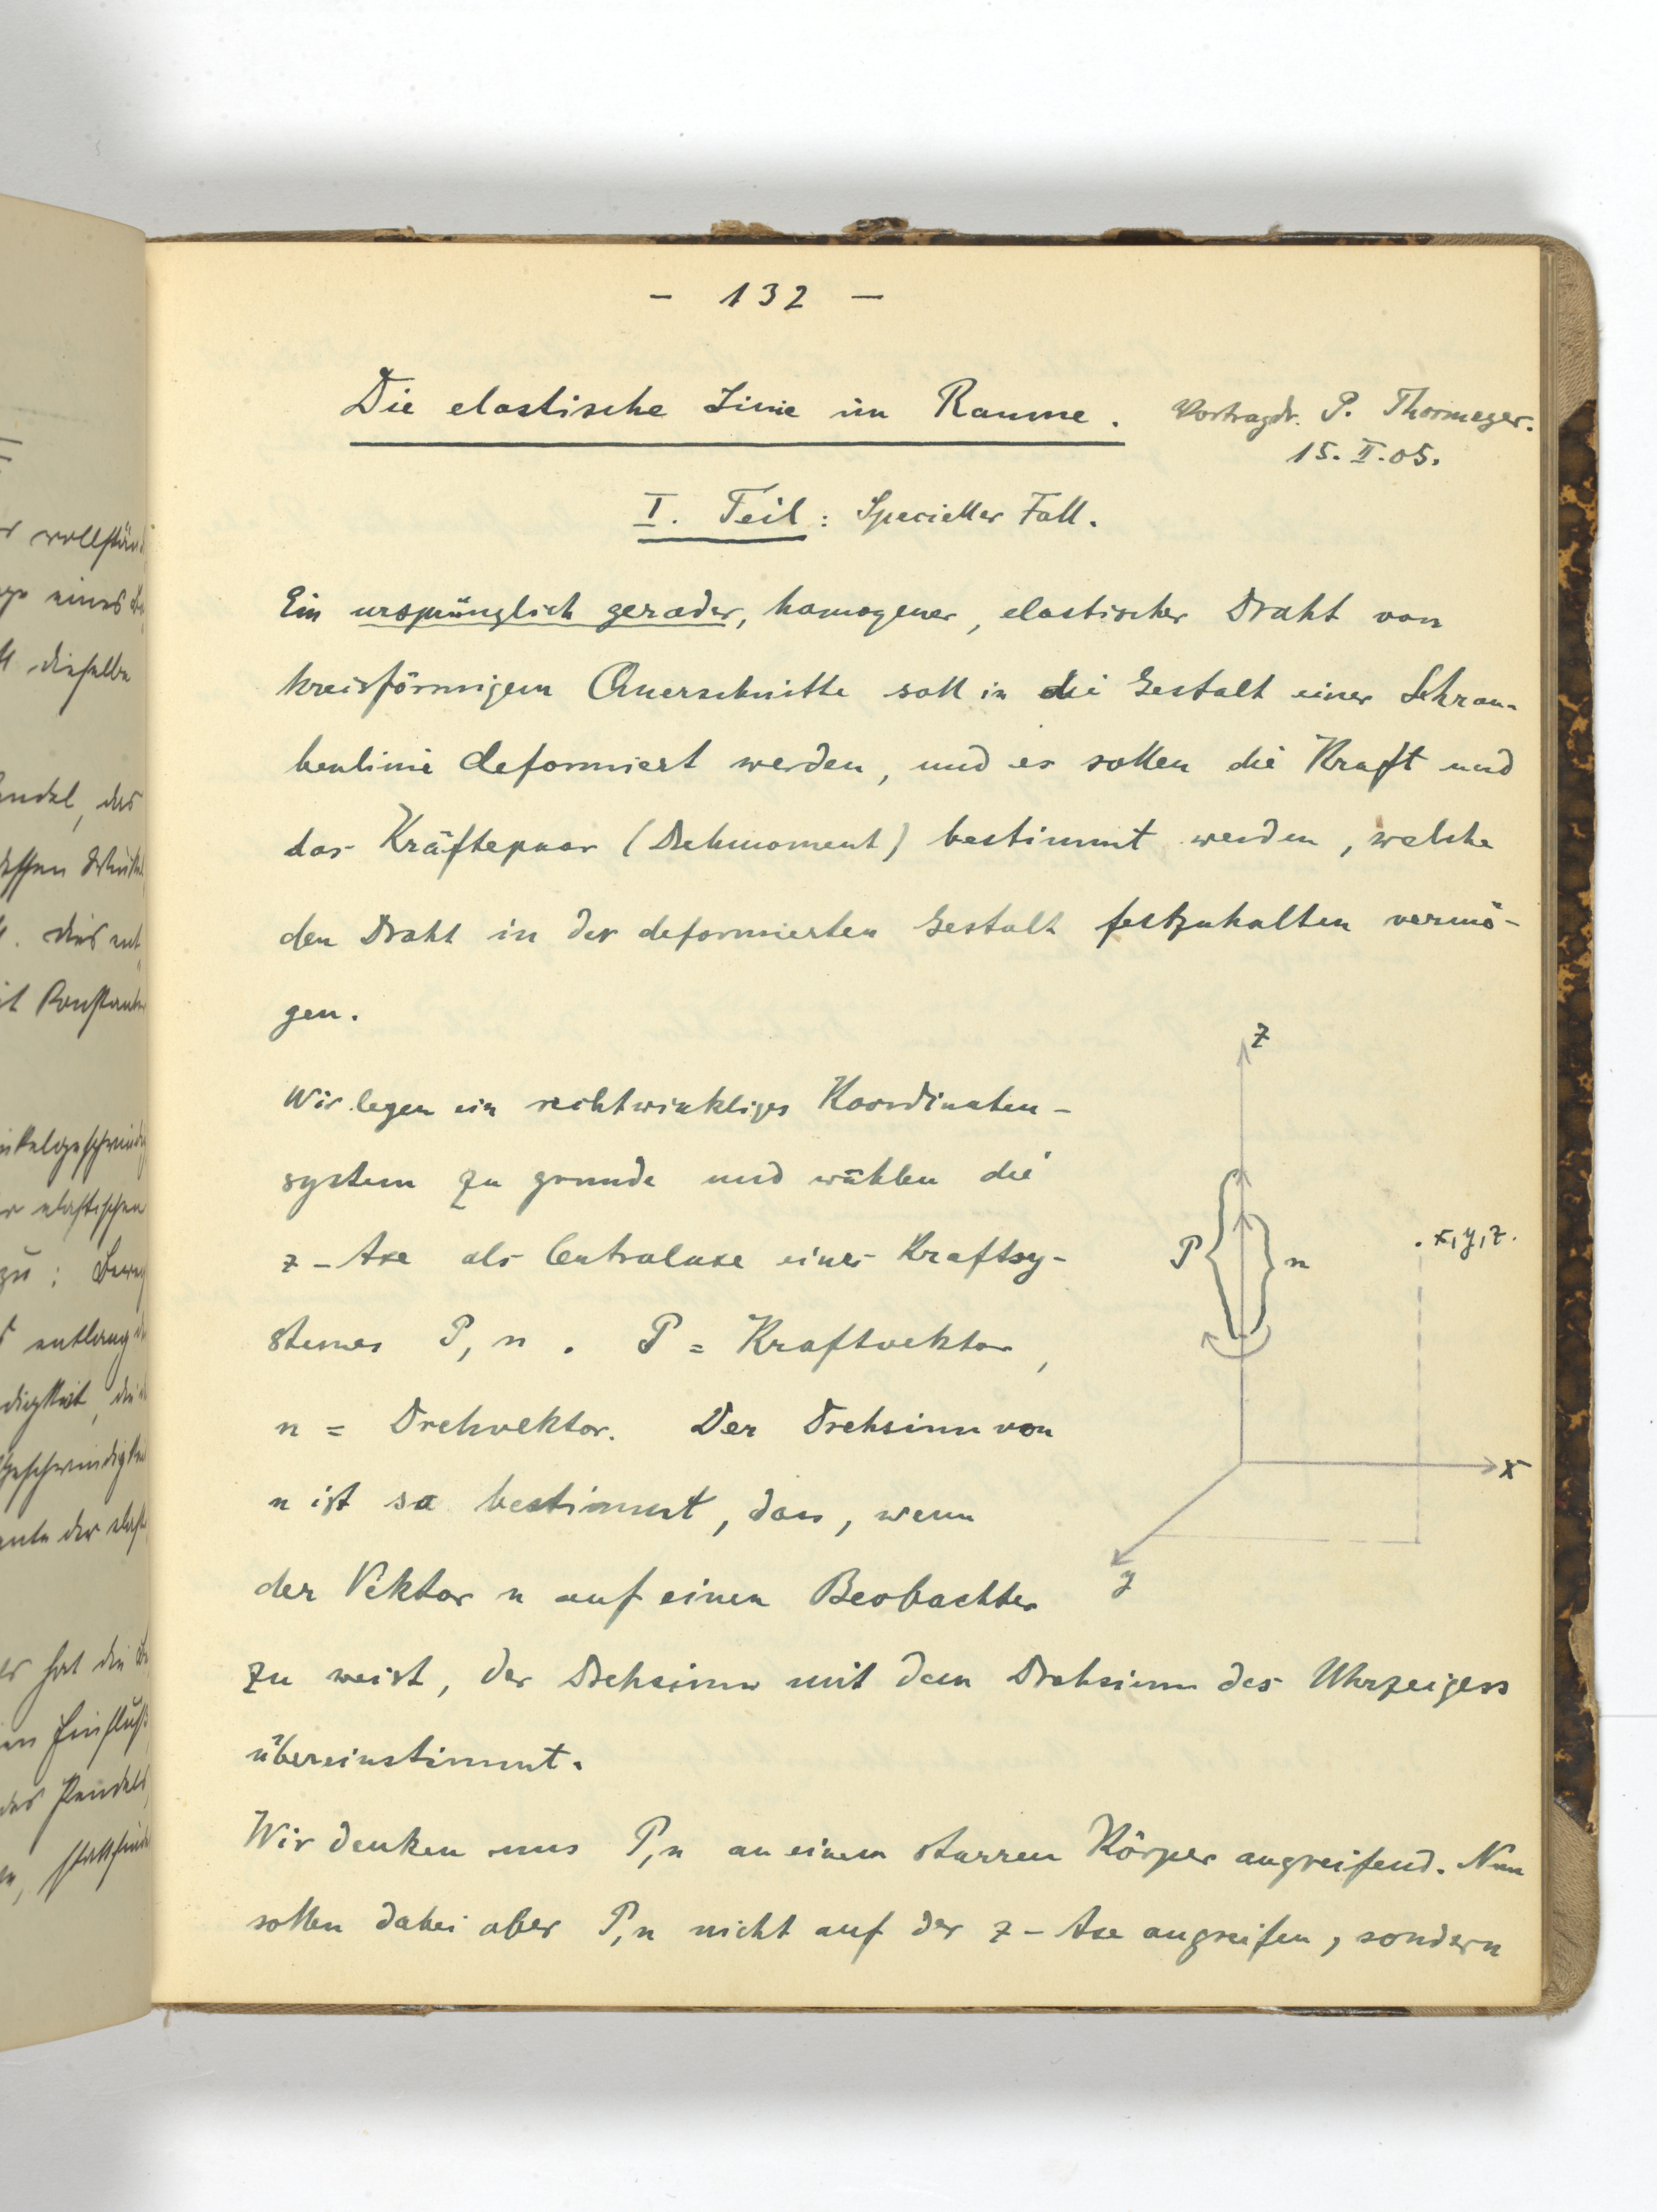 - 132 -
Die elastische Linie im Raume.
Vortragdr. P. Thormeyer.
15. II. 05.
I. Teil: Specieller Fall.
Ein ursprünglich gerader, homogener, elastischer Draht von
kreisförmigem Querschnitte soll in die Gestalt einer Schrau-
benlinie deformiert werden, und es sollen die Kraft und
das Kräftepaar (Drehmoment) bestimmt werden, welche
den Draht in der deformierten Gestalt festzuhalten vermö-
gen.
Wir legen ein rechtwinkliges Koordinaten-
system zu grunde und wählen die
z-Axe als Centralaxe eines Kraftsy-
stemes P, n. P = Kraftvektor,
n = Drehvektor. Der Drehsinn von
n ist so bestimmt, dass, wenn
der Vektor n auf einen Beobachter
zu weist, der Drehsinn mit dem Drehsinn des Uhrzeigers
übereinstimmt.
Wir denken uns P, n an einem starren Körper angreifend. Nun
sollen dabei aber P, n nicht auf der z-Axe angreifen, sondern
z
P
n
x, y, z.
x
y
vollstän
eines
dieselbe
das
dessen
dies
Konstante
elastischen
zu:
entlang
der
hat die
Einfluß
des Pendels